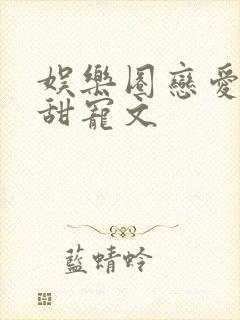 娛樂圈戀愛
甜寵文
藍蜻蛉